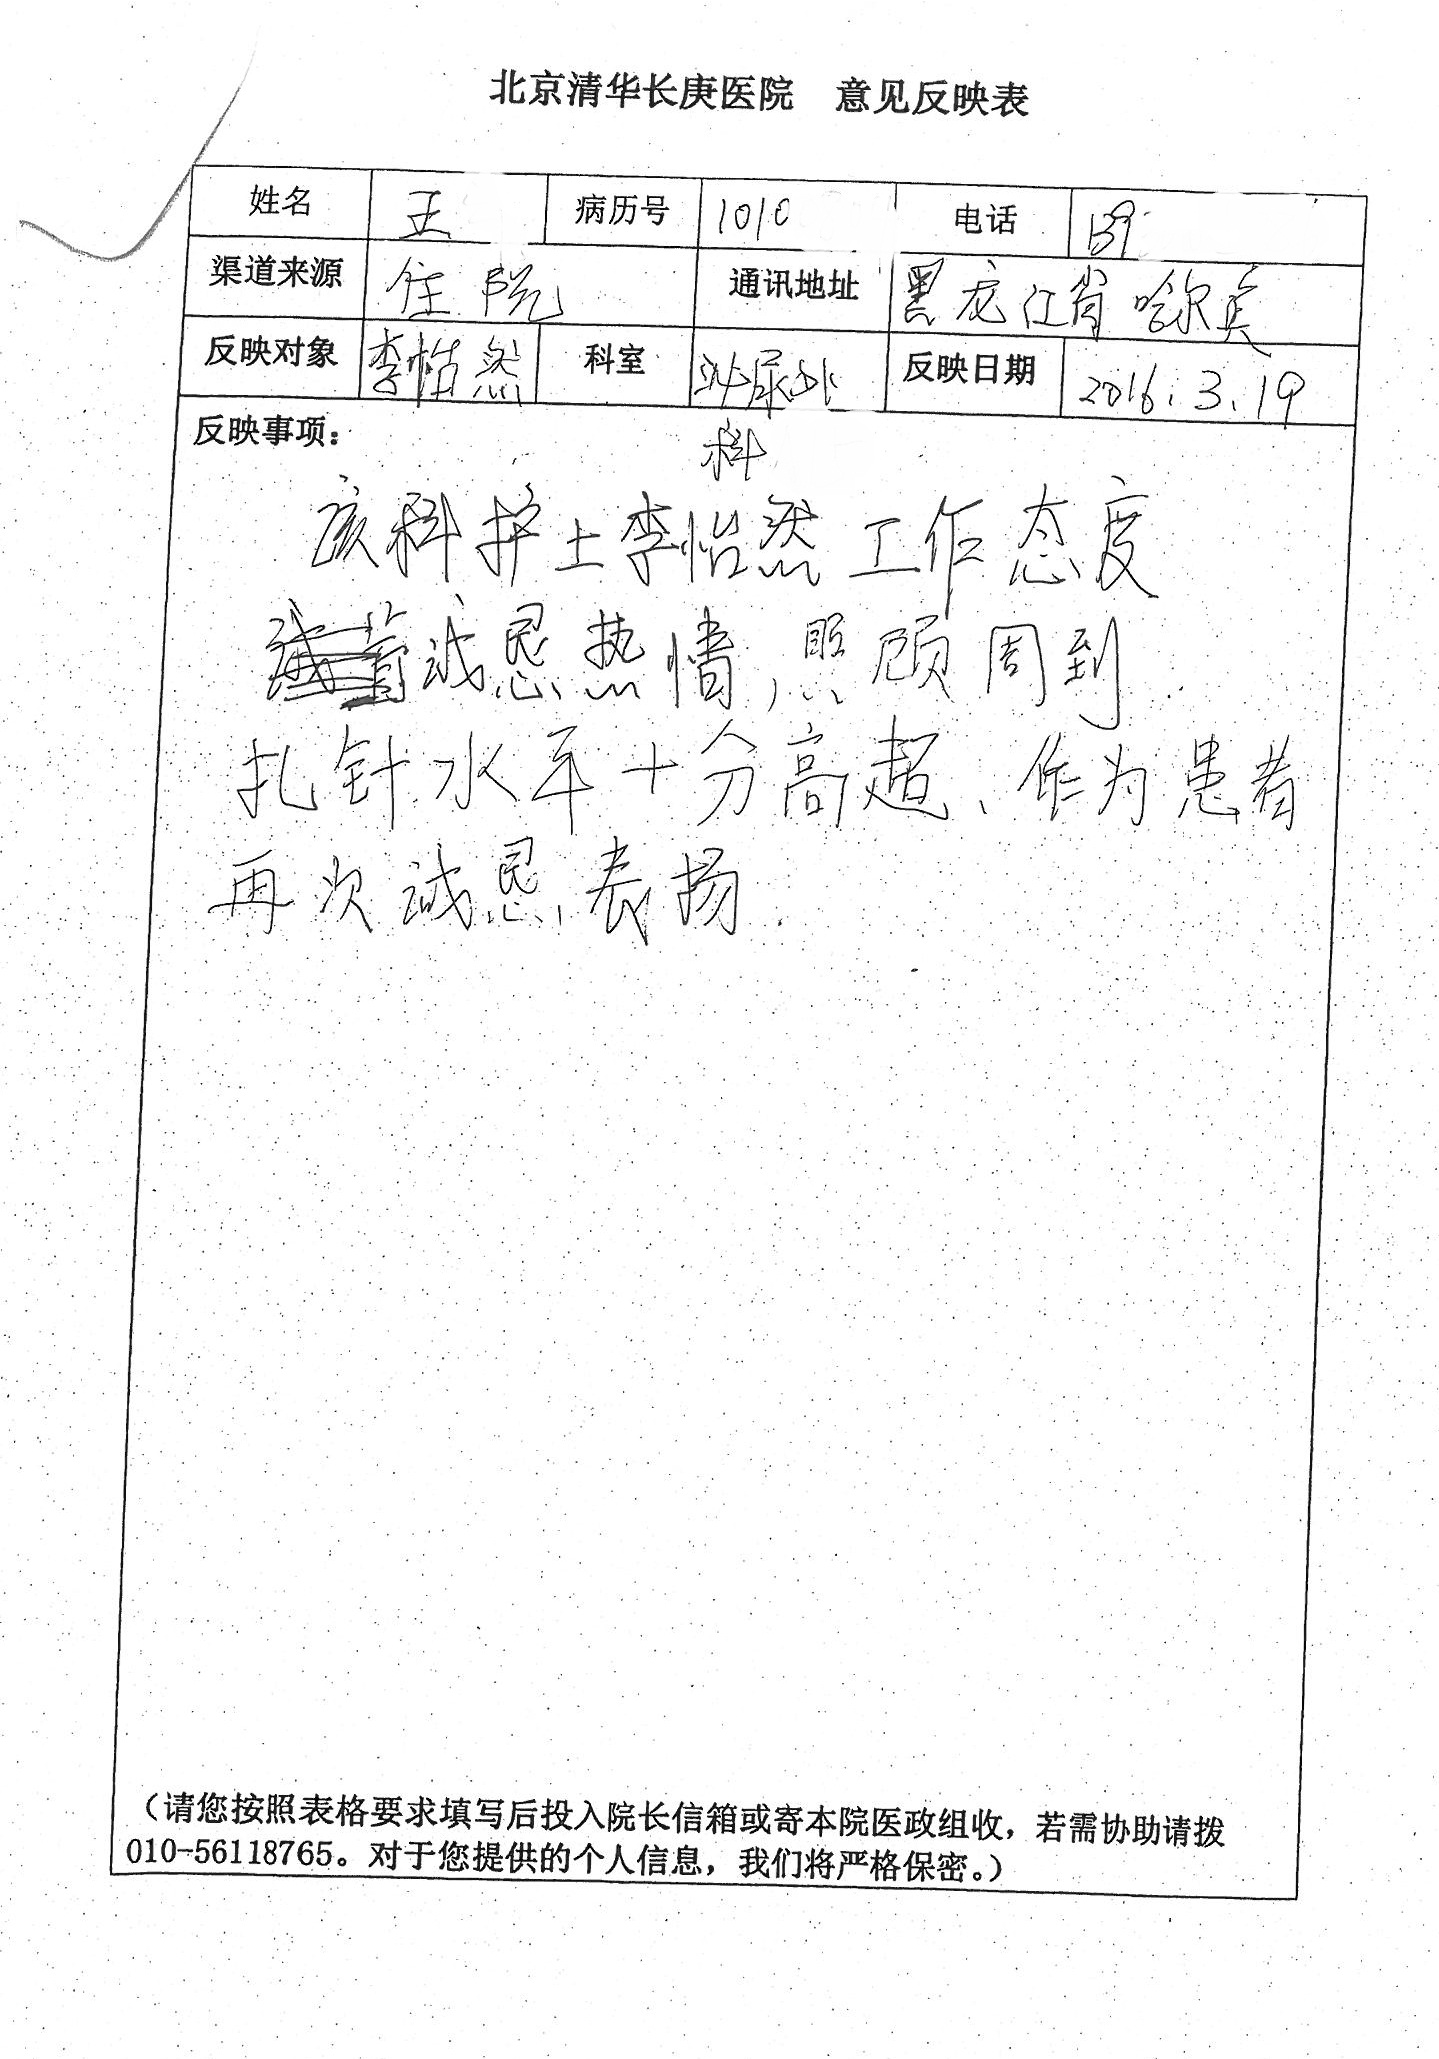 北京清华长庚医院 意见反映表
姓名 王 病历号 1010 电话 139
渠道来源 住院 通讯地址 黑龙江省哈尔滨
反映对象 李怡然 科室 泌尿外科 反映日期 2016.3.19
反映事项:
该科护士李怡然工作态度
诚恳热情,照顾周到.
扎针水平十分高超、作为患者
再次诚恳表扬.
(请您按照表格要求填写后投入院长信箱或寄本院医政组收,若需协助请拨
010-56118765。对于您提供的个人信息,我们将严格保密。)